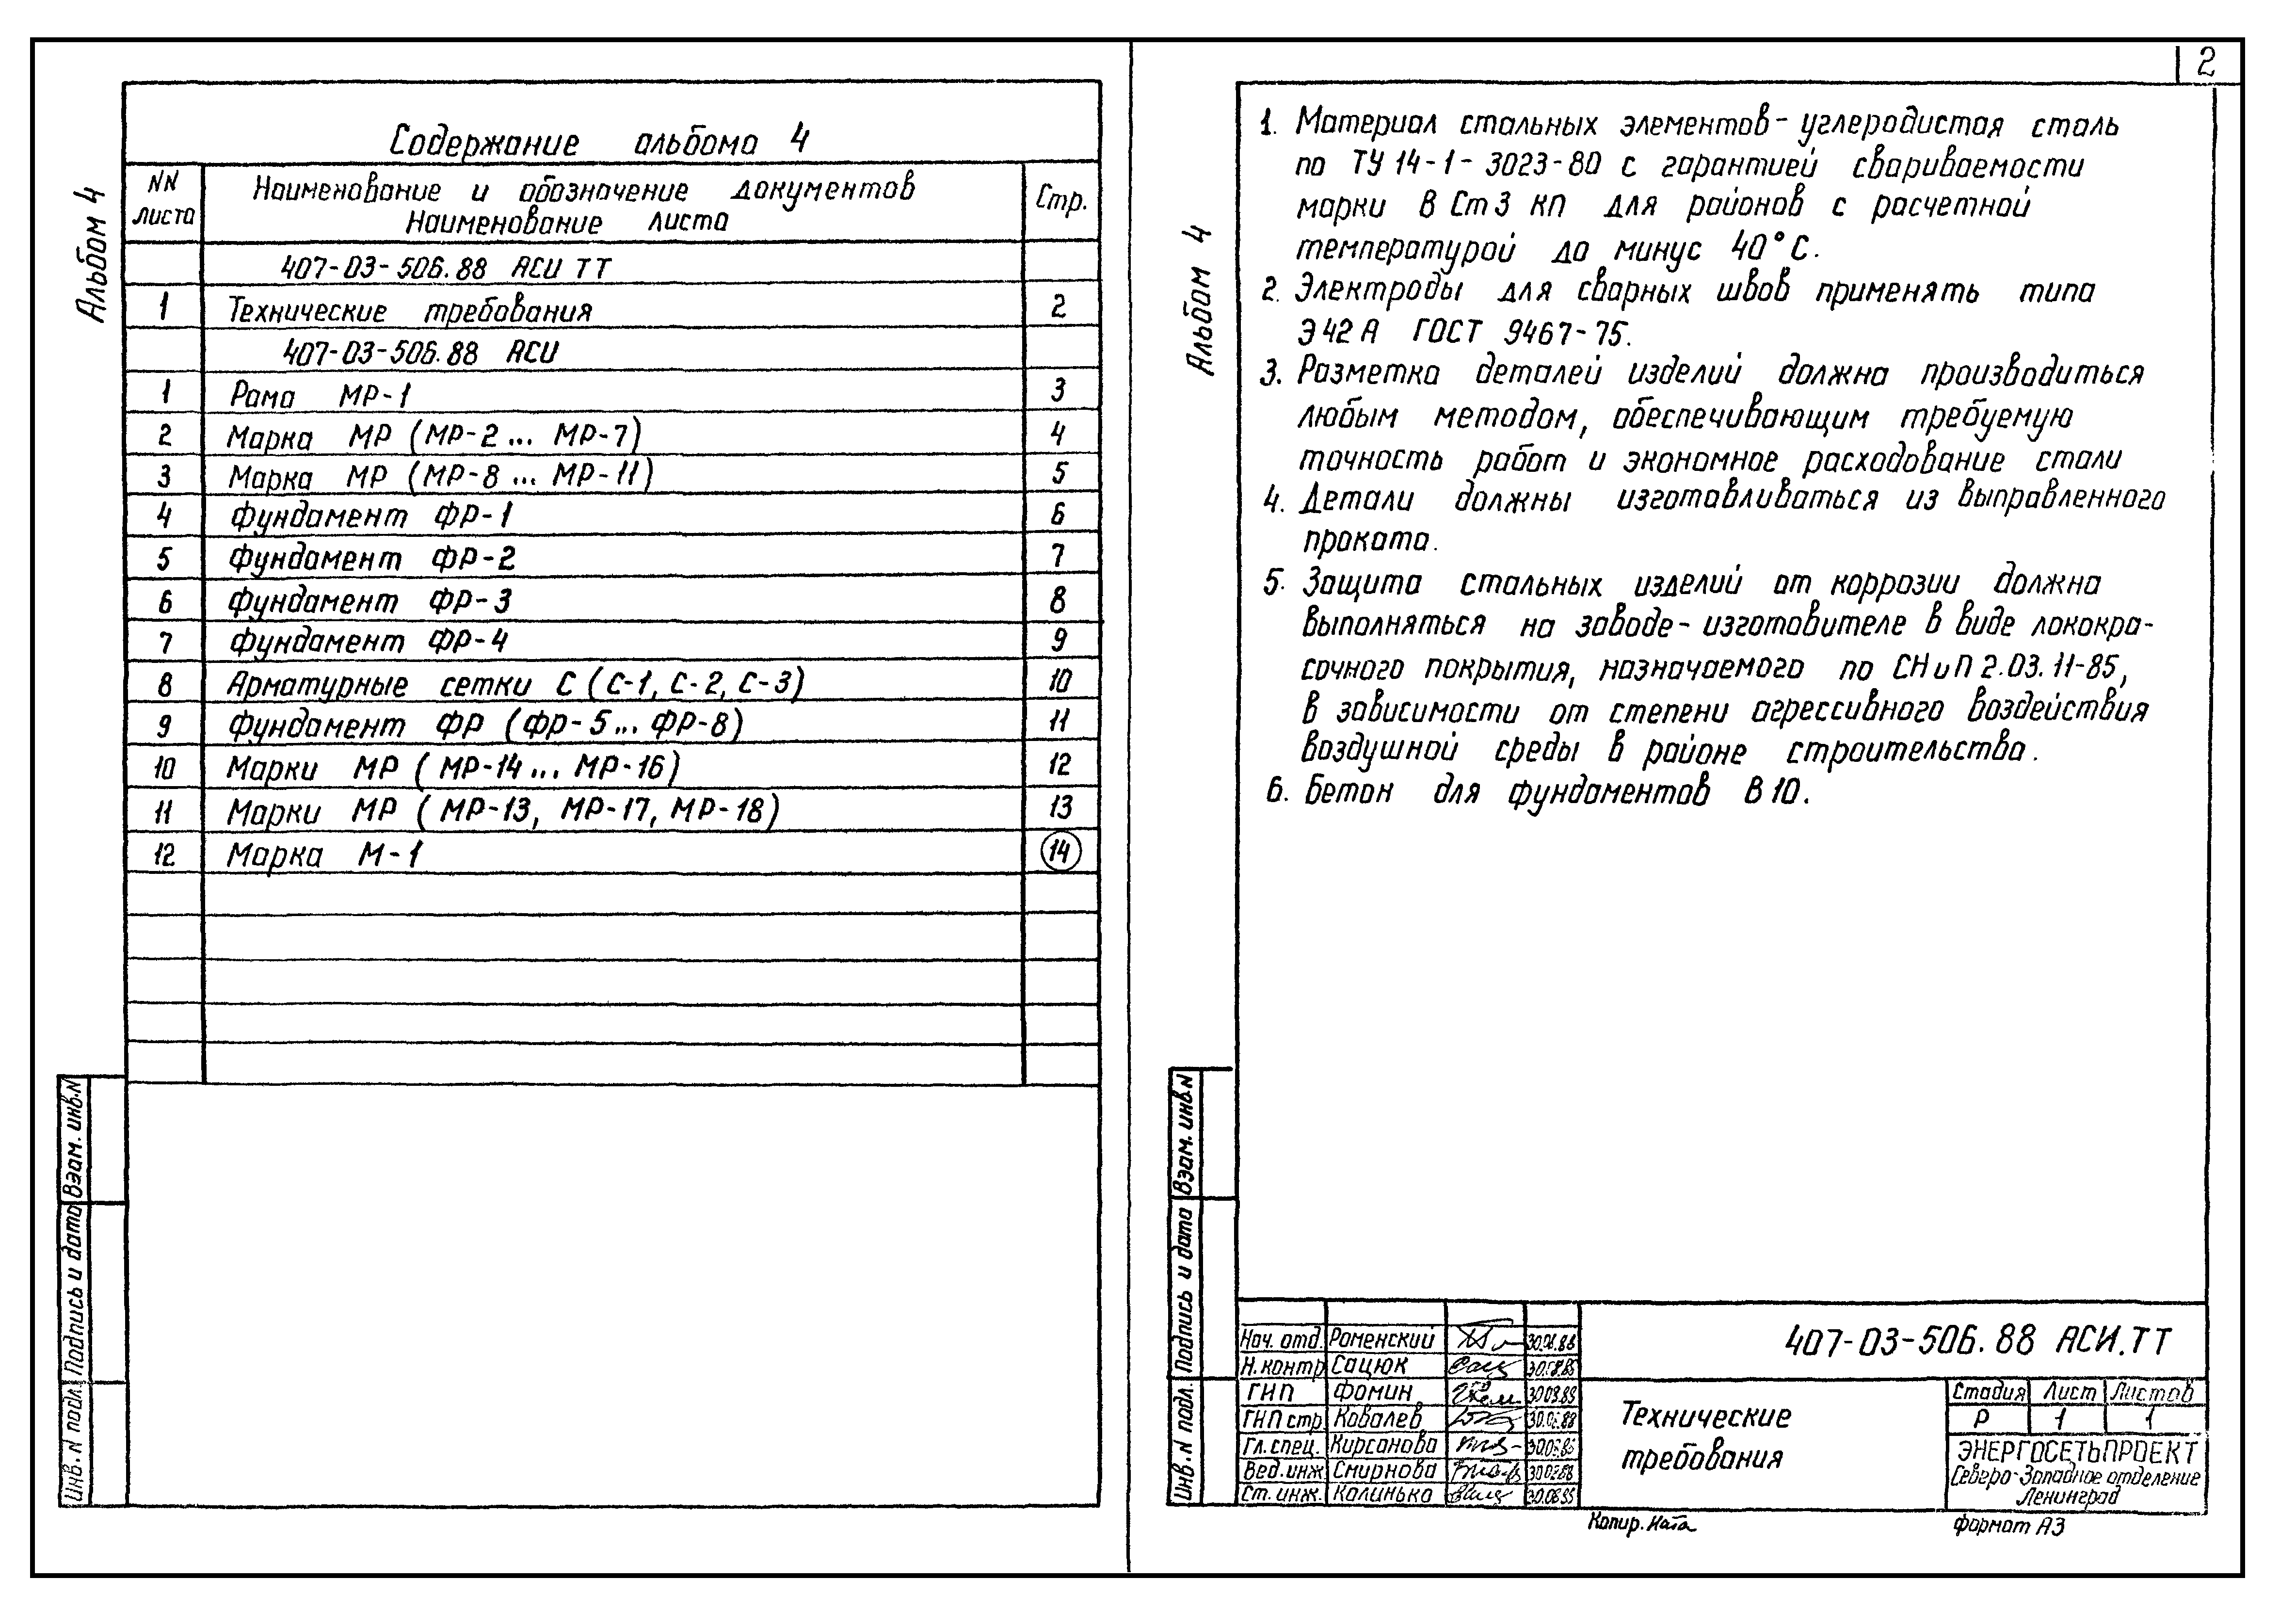 2
Альбом 4
Содержание альбома 4
NN листа
Наименование и обозначение документов
Наименование листа
Стр.
407-03-506.88 АСИ ТТ
1 Технические требования 2
407-03-506.88 АСИ
1 Рама МР-1 3
2 Марка МР (МР-2... МР-7) 4
3 Марка МР (МР-8... МР-11) 5
4 Фундамент ФР-1 6
5 Фундамент ФР-2 7
6 Фундамент ФР-3 8
7 Фундамент ФР-4 9
8 Арматурные сетки С (С-1, С-2, С-3) 10
9 Фундамент ФР (ФР-5... ФР-8) 11
10 Марки МР (МР-14... МР-16) 12
11 Марки МР (МР-13, МР-17, МР-18) 13
12 Марка М-1 14
Взам. инв. N
Подпись и дата
Инв. N подл.
Альбом 4
1. Материал стальных элементов - углеродистая сталь
по ТУ 14-1-3023-80 с гарантией свариваемости
марки В Ст 3 кп для районов с расчетной
температурой до минус 40°С.
2. Электроды для сварных швов применять типа
Э 42 А ГОСТ 9467-75.
3. Разметка деталей изделий должна производиться
любым методом, обеспечивающим требуемую
точность работ и экономное расходование стали
4. Детали должны изготавливаться из выправленного
проката.
5. Защита стальных изделий от коррозии должна
выполняться на заводе-изготовителе в виде лакокра-
сочного покрытия, назначаемого по СНиП 2.03.11-85,
в зависимости от степени агрессивного воздействия
воздушной среды в районе строительства.
6. Бетон для фундаментов В 10.
Взам. инв. N
Подпись и дата
Инв. N подл.
Нач. отд. Роменский
Н. контр Сацюк
ГИП Фомин
ГИП стр. Ковалев
Гл. спец. Кирсанова
Вед. инж Смирнова
Ст. инж. Калинько
407-03-506.88 АСИ.ТТ
Технические
требования
Стадия Лист Листов
Р 1 1
ЭНЕРГОСЕТЬПРОЕКТ
Северо-Западное отделение
Ленинград
Копир. Ната
формат А3